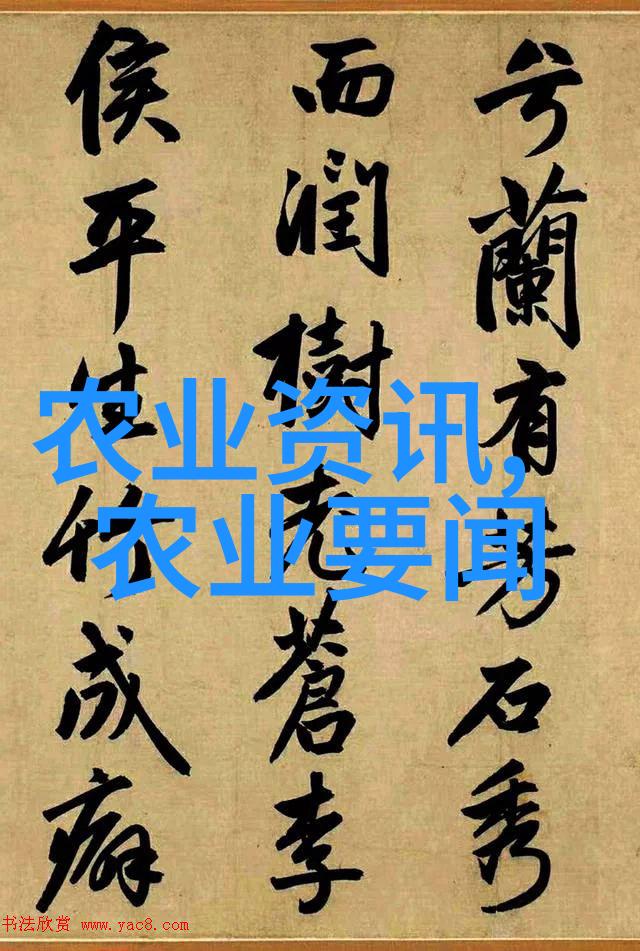 兮蘭有芳石秀
而潤樹老蒼李
侯平生竹成癖
农业资讯,
农业要闻
书法欣赏 www.yac8.com